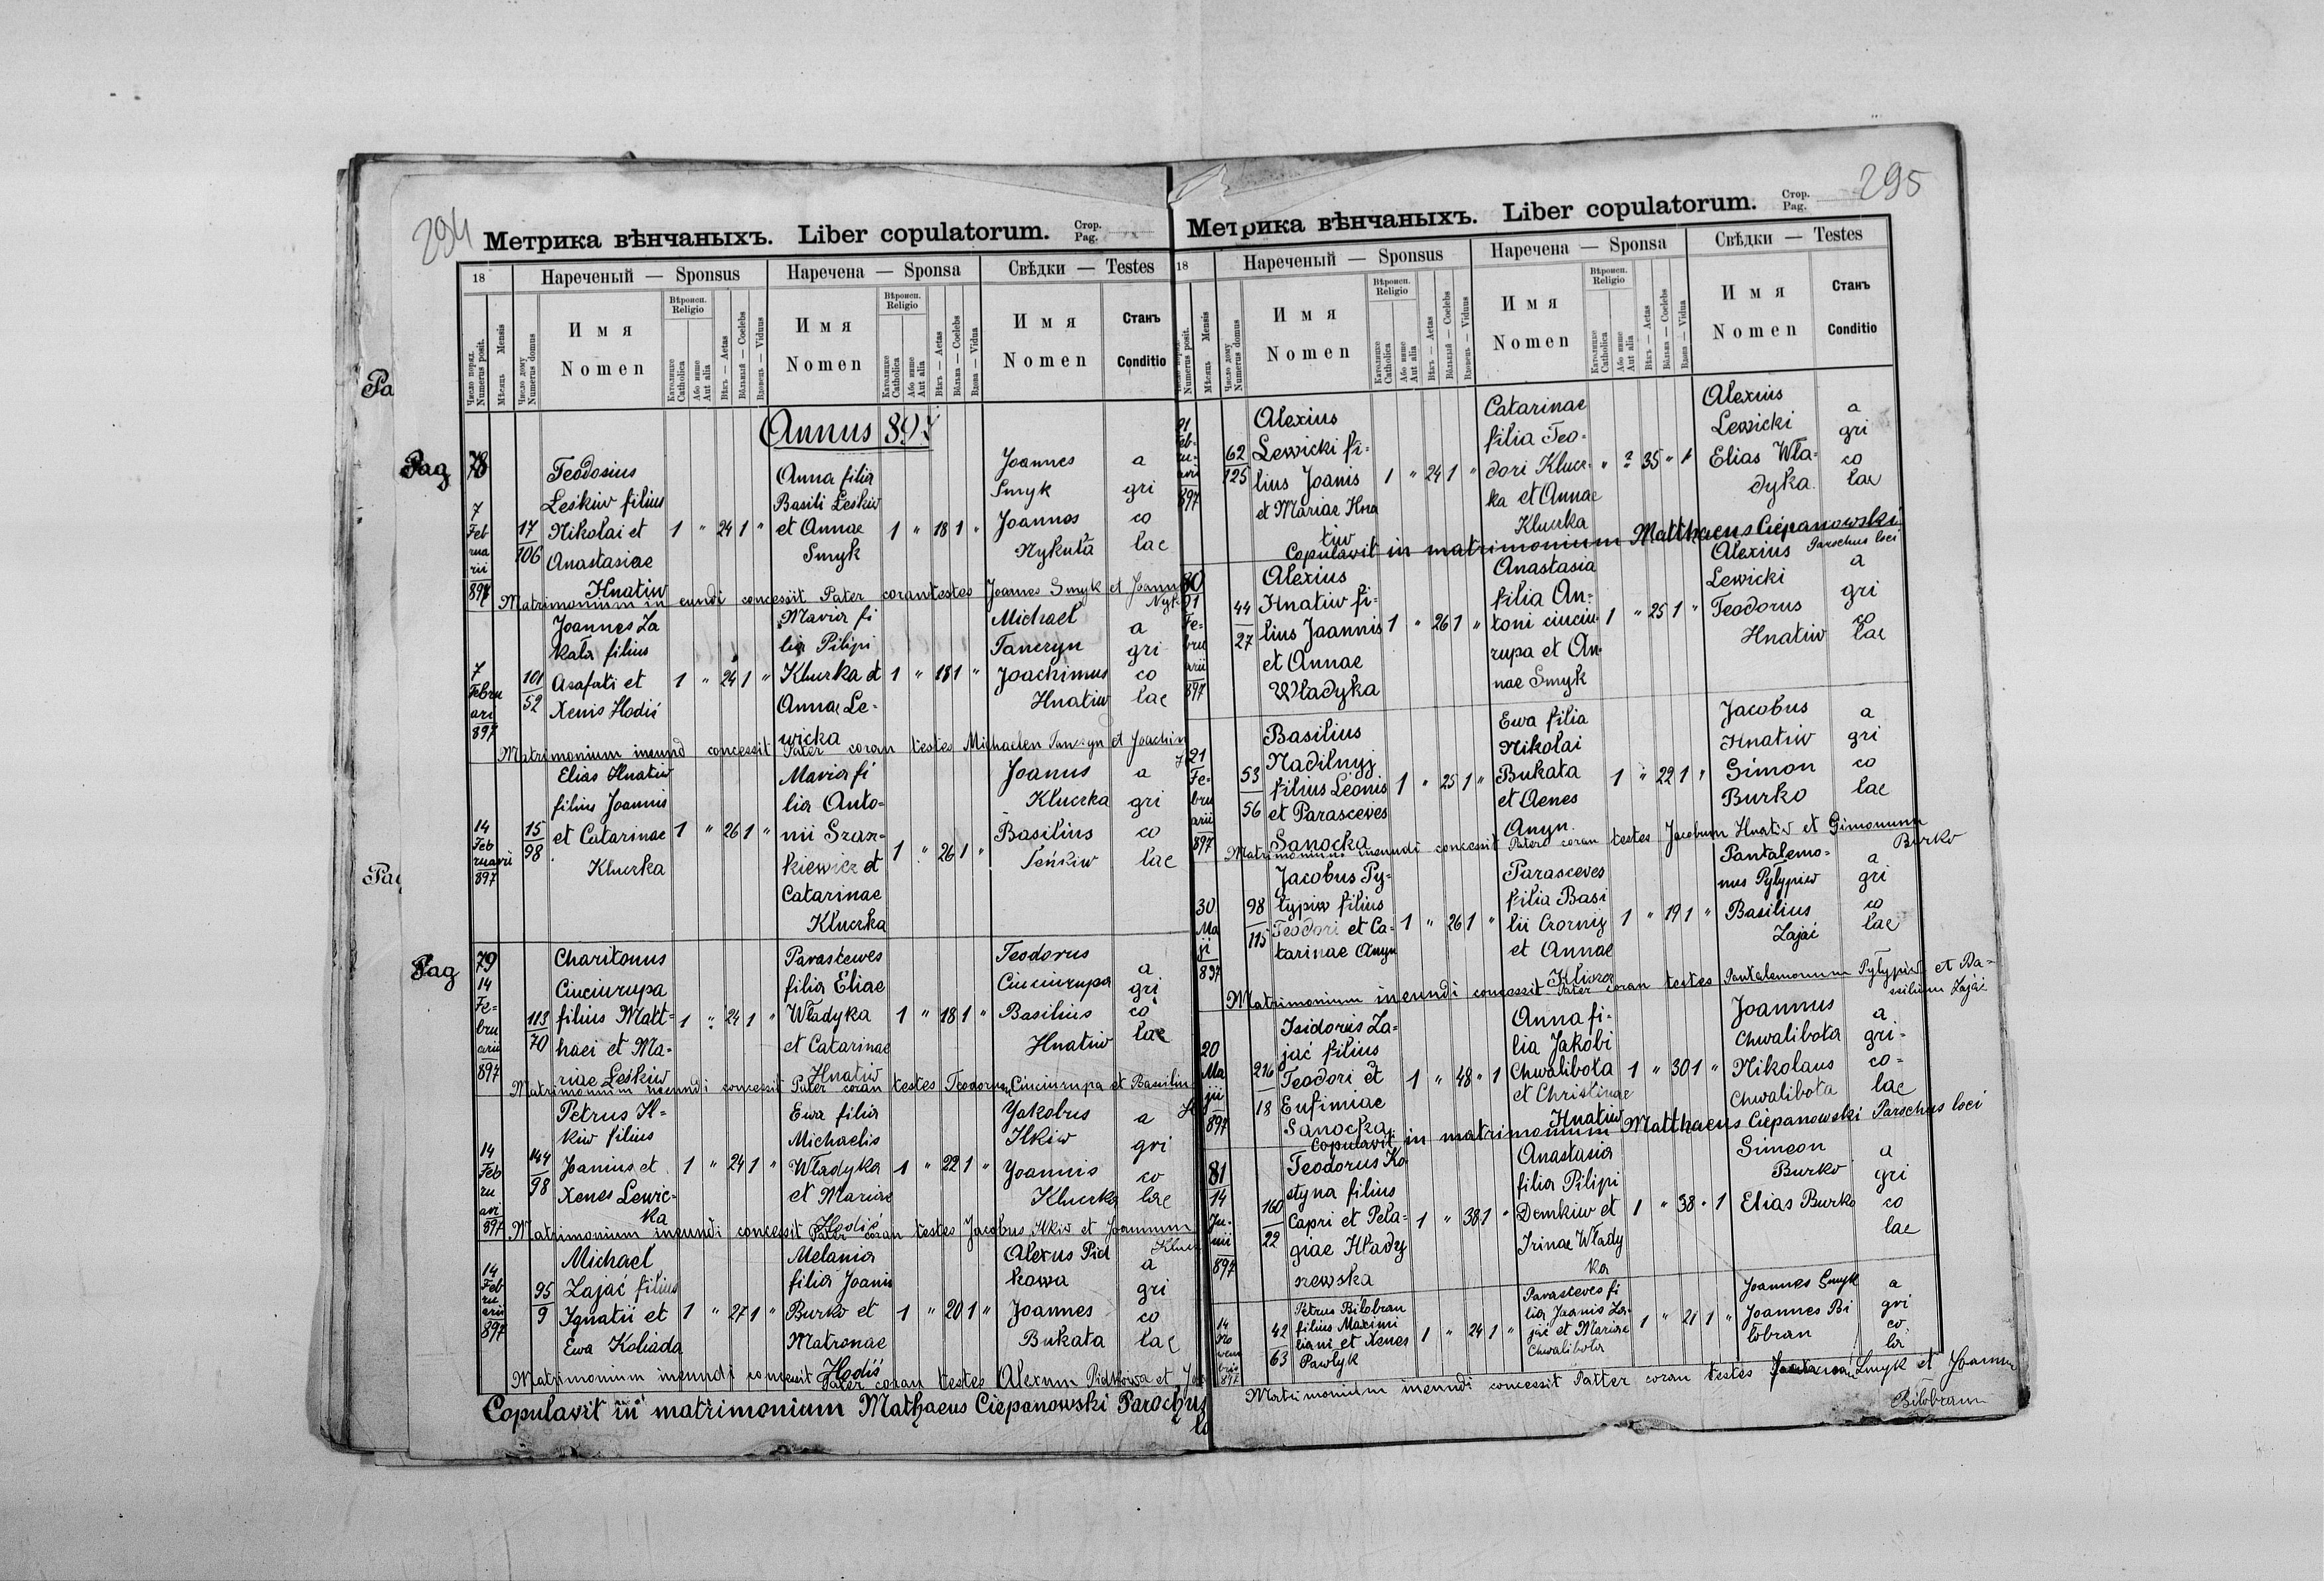 294
Метрика вѣнчаныхъ. Liber copulatorum. Стор. Pag.
18
Нареченый — Sponsus
Наречена — Sponsa
Свѣдки — Testes
Число поряд. Numerus posit.
Мѣсяць Mensis
Число дому Numerus domus
Имя
Nomen
Вѣроисп. Religio
Католицке Catholica
Або инше Aut alia
Вѣкъ — Aetas
Вôльный — Coelebs
Вдовець — Viduus
Имя
Nomen
Вѣроисп. Religio
Католицке Catholica
Або инше Aut alia
Вѣкъ — Aetas
Вôльна — Coelebs
Вдова — Vidua
Имя
Nomen
Станъ
Conditio
Annus 897
Pag 78
7 Februarii 897
17/106
Teodosius
Leśkiw filius
Nikolai et
Anastasiae
Hnatiw
1 " 24 1 "
Anna filia
Basili Leśkiw
et Annae
Smyk
1 " 18 1 "
Joannes
Smyk
Joannes
Nykuta
a
gri
co
lae
Matrimonium in eundi concessit Pater coran testes Joannes Smyk et Joann
7 Februari 897
101/52
Joannes Za
kala filius
Asafati et
Xenis Hodiś
1 " 24 1 "
Maria fi
lia Pilipi
Kluczka et
Annae Le-
wicka
1 " 18 1 "
Michael
Tanczyn
Joachimus
Hnatiw
a
gri
co
lae
Matrimonium ineund concessit Pater coran testes Michaelen Tanczyn et Joachim
14 Februarii 897
15/98
Elias Hnatiw
filius Joannis
et Catarinae
Kluczka
1 " 26 1 "
Maria fi
lia Anto-
nii Szasz-
kiewicz et
Catarinae
Kluczka
1 " 26 1 "
Joanus
Kluczka
Basilius
Seńkiw
a
gri
co
lae
Pag 79
14 Februarii 897
113/70
Charitonus
Ciuciurupa
filius Matt-
haei et Ma-
riae Leśkiw
1 " 24 1 "
Parascewes
filia Eliae
Władyka
et Catarinae
Hnatiw
1 " 18 1 "
Teodorus
Ciuciurupa
Basilius
Hnatiw
a
gri
co
lae
Matrimonium ineundi concessit Pater coran testes Teodorum Ciuciurupa et Basilim
14 Februari 897
144/98
Petrus Il-
kiw filius
Joanius et
Xenes Lewic-
ka
1 " 24 1 "
Ewa filia
Michaelis
Władyka
et Mariae
Hodiś
1 " 22 1 "
Yakobus
Ilkiw
Yoannis
Kluczka
a
gri
co
lae
Matrimonium ineundi concessit Pater coran testes Jacobus Ilkiw et Joannum
14 Februarii 897
95/9
Michael
Zajać filius
Ignatii et
Ewa Koliada
1 " 27 1 "
Melania
filia Joanis
Burko et
Matronae
Hodiś
1 " 20 1 "
Alexus Pid
kowa
Joannes
Bukata
a
gri
co
lae
Matrimonium ineundi concessit Pater coran testes Alexum Pidkowa et
Copulavit in matrimonium Mathaeus Ciepanowski Parochus
295
Метрика вѣнчаныхъ. Liber copulatorum. Стор. Pag.
18
Нареченый — Sponsus
Наречена — Sponsa
Свѣдки — Testes
Numerus posit.
Мѣсяць Mensis
Число дому Numerus domus
Имя
Nomen
Вѣроисп. Religio
Католицке Catholica
Або инше Aut alia
Вѣкъ — Aetas
Вôльный — Coelebs
Вдовець — Viduus
Имя
Nomen
Вѣроисп. Religio
Католицке Catholica
Або инше Aut alia
Вѣкъ — Aetas
Вôльна — Coelebs
Вдова — Vidua
Имя
Nomen
Станъ
Conditio
21 Februarii 897
62/125
Alexius
Lewicki fi-
lius Joanis
et Mariae Hna
tiw
1 " 24 1 "
Catarinae
filia Teo-
dori Klucz-
ka et Annae
Kluczka
" 35 " 1
Alexius
Lewicki
Elias Wła-
dyka
a
gri
co
lae
Copulavit in matrimonium Matthaeus Ciepanowski
Parochus loci
80
21 Februarii 897
44/27
Alexius
Hnatiw fi-
lius Joannis
et Annae
Władyka
1 " 26 1 "
Anastasia
filia An-
toni ciuciu-
rupa et An-
nae Smyk
1 " 25 1 "
Alexius
Lewicki
Teodorus
Hnatiw
a
gri
co
lae
21 Februarii 897
53/56
Basilius
Nadilnyj
filius Leonis
et Parasceves
Sanocka
1 " 25 1 "
Ewa filia
Nikolai
Bukata
et Aenes
Anyn
1 " 22 1 "
Jacobus
Hnatiw
Simon
Burko
a
gri
co
lae
Matrimonium ineundi concessit Pater coran testes Jacobum Hnatiw et Simonum
Burko
30 Maji 897
98/115
Jacobus Py-
łypiw filius
Teodori et Ca-
tarinae Anyn
1 " 26 1 "
Parasceves
filia Basi
lii Czorniy
et Annae
1 " 19 1 "
Pantalemo-
nus Pyłypiw
Basilius
Zajać
a
gri
co
lae
Matrimonium ineundi concessit Pater coran testes Pantalemonum Pyłypiw et Ba-
silium Zajać
20 Maji 897
216/18
Isidorus Za-
jać filius
Teodori et
Eufimiae
Sanocka
1 " 48 " 1
Anna fi-
lia Jakobi
Chwalibota
et Christinae
Hnatiw
1 " 30 1 "
Joannus
Chwalibota
Nikolaus
Chwalibota
a
gri-
co-
lae
Copulavit in matrimonium Matthaeus Ciepanowski Parochus loci
81
14 Junii 897
160/22
Teodorus Ko
styna filius
Capri et Pela-
giae Hlady
szewska
1 " 38 1 "
Anastasia
filia Pilipi
Demkiw et
Irinae Włady
ka
1 " 38 " 1
Simeon
Burko
Elias Burko
a
gri
co
lae
14 Nowembris 897
42/63
Petrus Biłobran
filius Maximi
liani et Xenes
Pawłyk
1 " 24 1 "
Parasceves fi
lia Joanis Za-
jać et Mariae
Chwalibota
1 " 21 1 "
Joannes Smyk
Joannes Bi
łobran
a
gri
co
la
Matrimonium ineundi concessit Patter coran testes Smyk et Joannum
Biłobranum